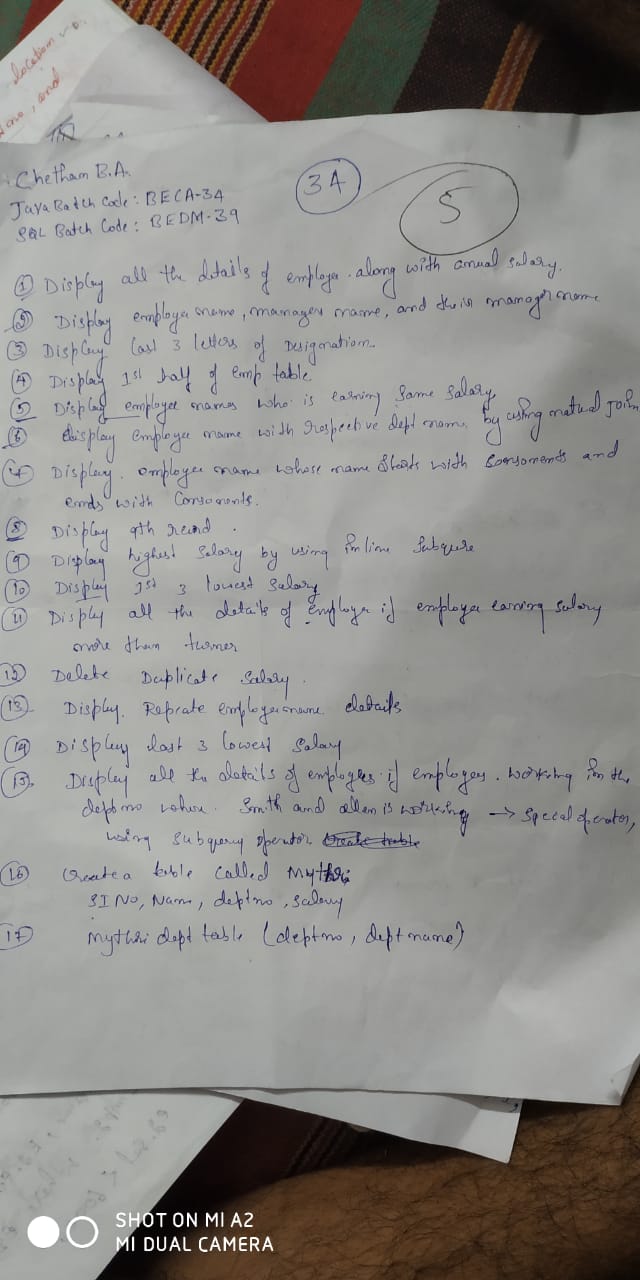 location
no, and
Chetham B.A.
34
5
Java Batch Code : BECA-34
SQL Batch Code : BEDM-39
① Display all the details of employee along with annual salary.
② Display employee name, manager name, and their manager name
③ Display last 3 letters of Designation.
④ Display 1st half of emp table
⑤ Display employee names who is earning same salary
⑥ display employee name with respective dept name by using natual join
⑦ Display employee name whose name starts with consonents and
ends with consonents.
⑧ Display 9th record.
⑨ Display highest salary by using inline subquire
⑩ Display 1st 3 lowest salary
⑪ Display all the details of employee if employee earning salary
more than turner
⑫ Delete Duplicate salary.
⑬ Display. Repeate employeename details
⑭ Display last 3 lowest salary
⑮ Display all the details of employees if employees working in the
deptno where Smith and allen is working → Special operator,
using subquery operator
⑯ Create a table called Mythri
SI No, Name, deptno, salary
⑰ Mythri dept table (deptno, dept name)
SHOT ON MI A2
MI DUAL CAMERA